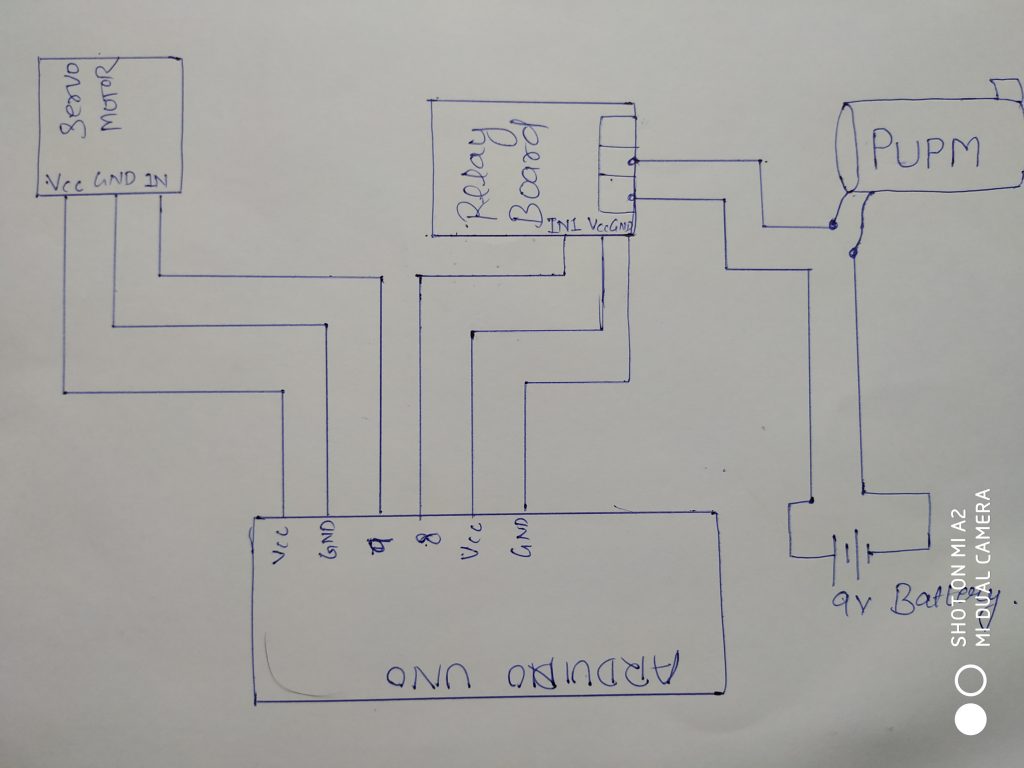 Servo
MOTOR
Vcc GND IN
Relay
Board
IN1 Vcc GND
PUPM
Vcc
GND
9
8
Vcc
GND
ARDUINO UNO
9V Battery.
SHOT ON MI A2
MI DUAL CAMERA